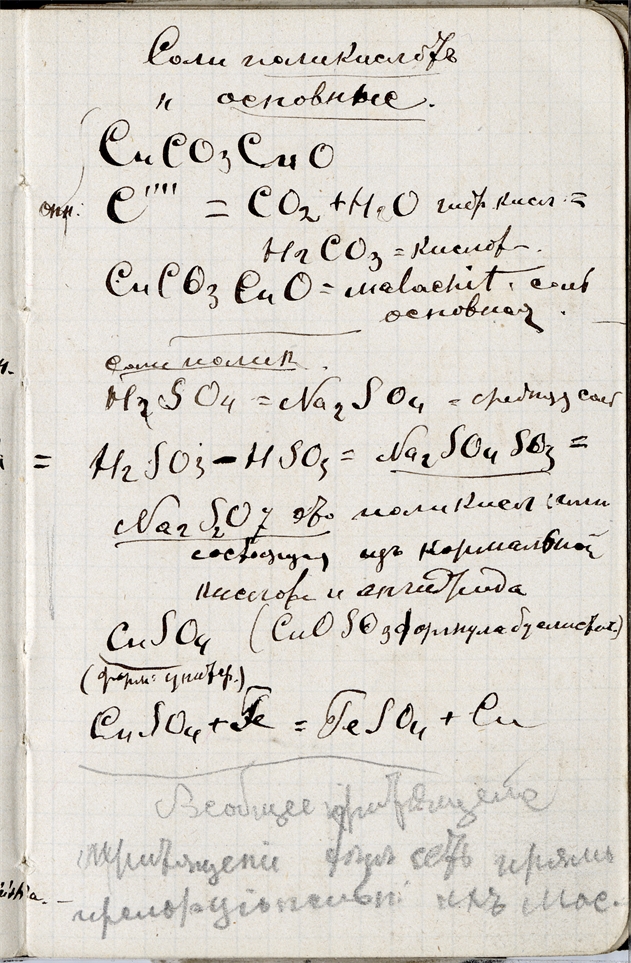 Соли поликислотъ
и основные.
CuCO3CuO
C'''' = CO2 + H2O гидр. кисл. =
H2CO3 = кислот.
CuCO3 CuO = malachit. соль
основная.
соли полик.
H2SO4 = Na2SO4 = средняя соль
= H2SO3 - HSO3 = Na2SO4 SO3 =
Na2S2O7 это поликисл. или
состоящая изъ нормальной
кислоты и ангидрида
CuSO4 (CuO SO3 формула дуалист.)
(форм. унитар.)
CuSO4 + Fe = FeSO4 + Cu
Всеобщее притяженіе
притяженіе есть прямо
пропорціонально ихъ мас.